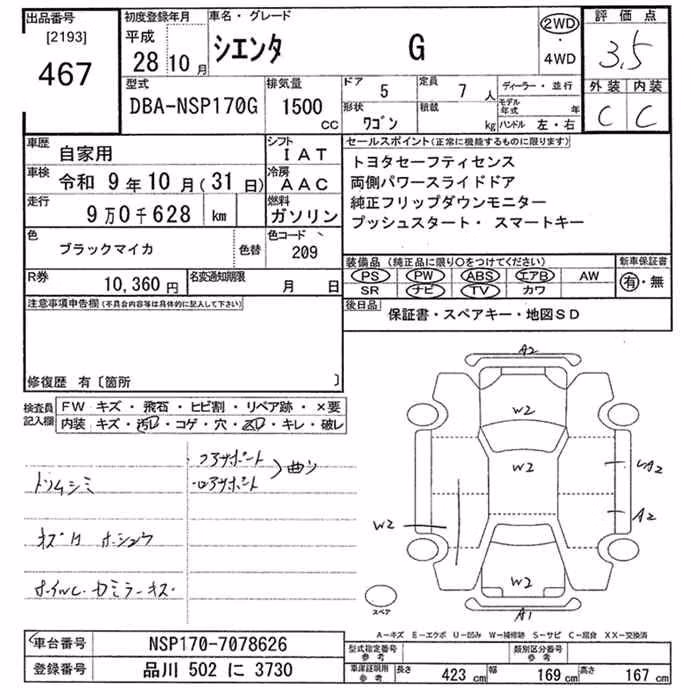 出品番号
[2193]
467
初度登録年月
平成
28 10 月
車名・グレード
シエンタ G
2WD
4WD
評価点
3.5
外装 内装
C C
型式
DBA-NSP170G
排気量
1500
CC
ドア 5
定員 7 人
形状 ワゴン
積載 kg
ディーラー・並行
モデル年式 年
ハンドル 左・右
車歴
自家用
シフト
IAT
車検 令和 9年10月(31日)
冷房
AAC
走行 9万0千628 km
燃料
ガソリン
色 ブラックマイカ 色替
色コード
209
R券 10,360円
名変通知期限 月 日
セールスポイント(正常に機能するものに限ります)
トヨタセーフティセンス
両側パワースライドドア
純正フリップダウンモニター
プッシュスタート・ スマートキー
装備品 (純正品に限り○をつけてください)
新車保証書
PS PW ABS エアB AW
有・無
SR ナビ TV カワ
後日品
保証書・スペアキー・地図SD
注意事項申告欄(不具合内容等は具体的に記入して下さい)
修復歴 有〔箇所 〕
検査員記入欄
FW キズ・飛石・ヒビ割・リペア跡・×要
内装 キズ・汚レ・コゲ・穴・スレ・キレ・破レ
・コアサポート
トリムシミ
曲り
A2
W2
W2
A2
W2
A2
W2
A1
スペア
A-キズ E-エクボ U-凹み W-補修跡 S-サビ C-腐食 XX-交換済
車台番号 NSP170-7078626
登録番号 品川 502 に 3730
型式指定番号 参考
類別区分番号 参考
車庫証明用 参考
長さ 423 cm 幅 169 cm 高さ 167 cm